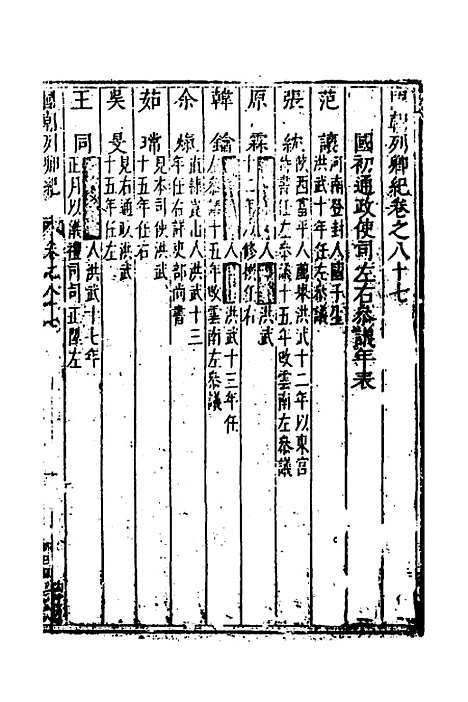 國朝列卿紀卷之八十七
國初通政使司左右叅議年表
范讓 河南登封人國子生
洪武十年任左叅議
張紞 陝西富平人薦舉洪武十二年以東宮
侍書任左叅議十五年改雲南左叅議
原霖 人洪武
十二年以修撰任右
韓鑰 人洪武十三年任
左叅議十五年改雲南左叅議
余熂 直隸崑山人洪武十三
年任右詳吏部尚書
茹瑺 見本司使洪武
十五年任右
吳旻 見右通政洪武
十五年任左
王同 人洪武十七年
正月以儀禮司司正陞左
國朝列卿紀 卷之八十七